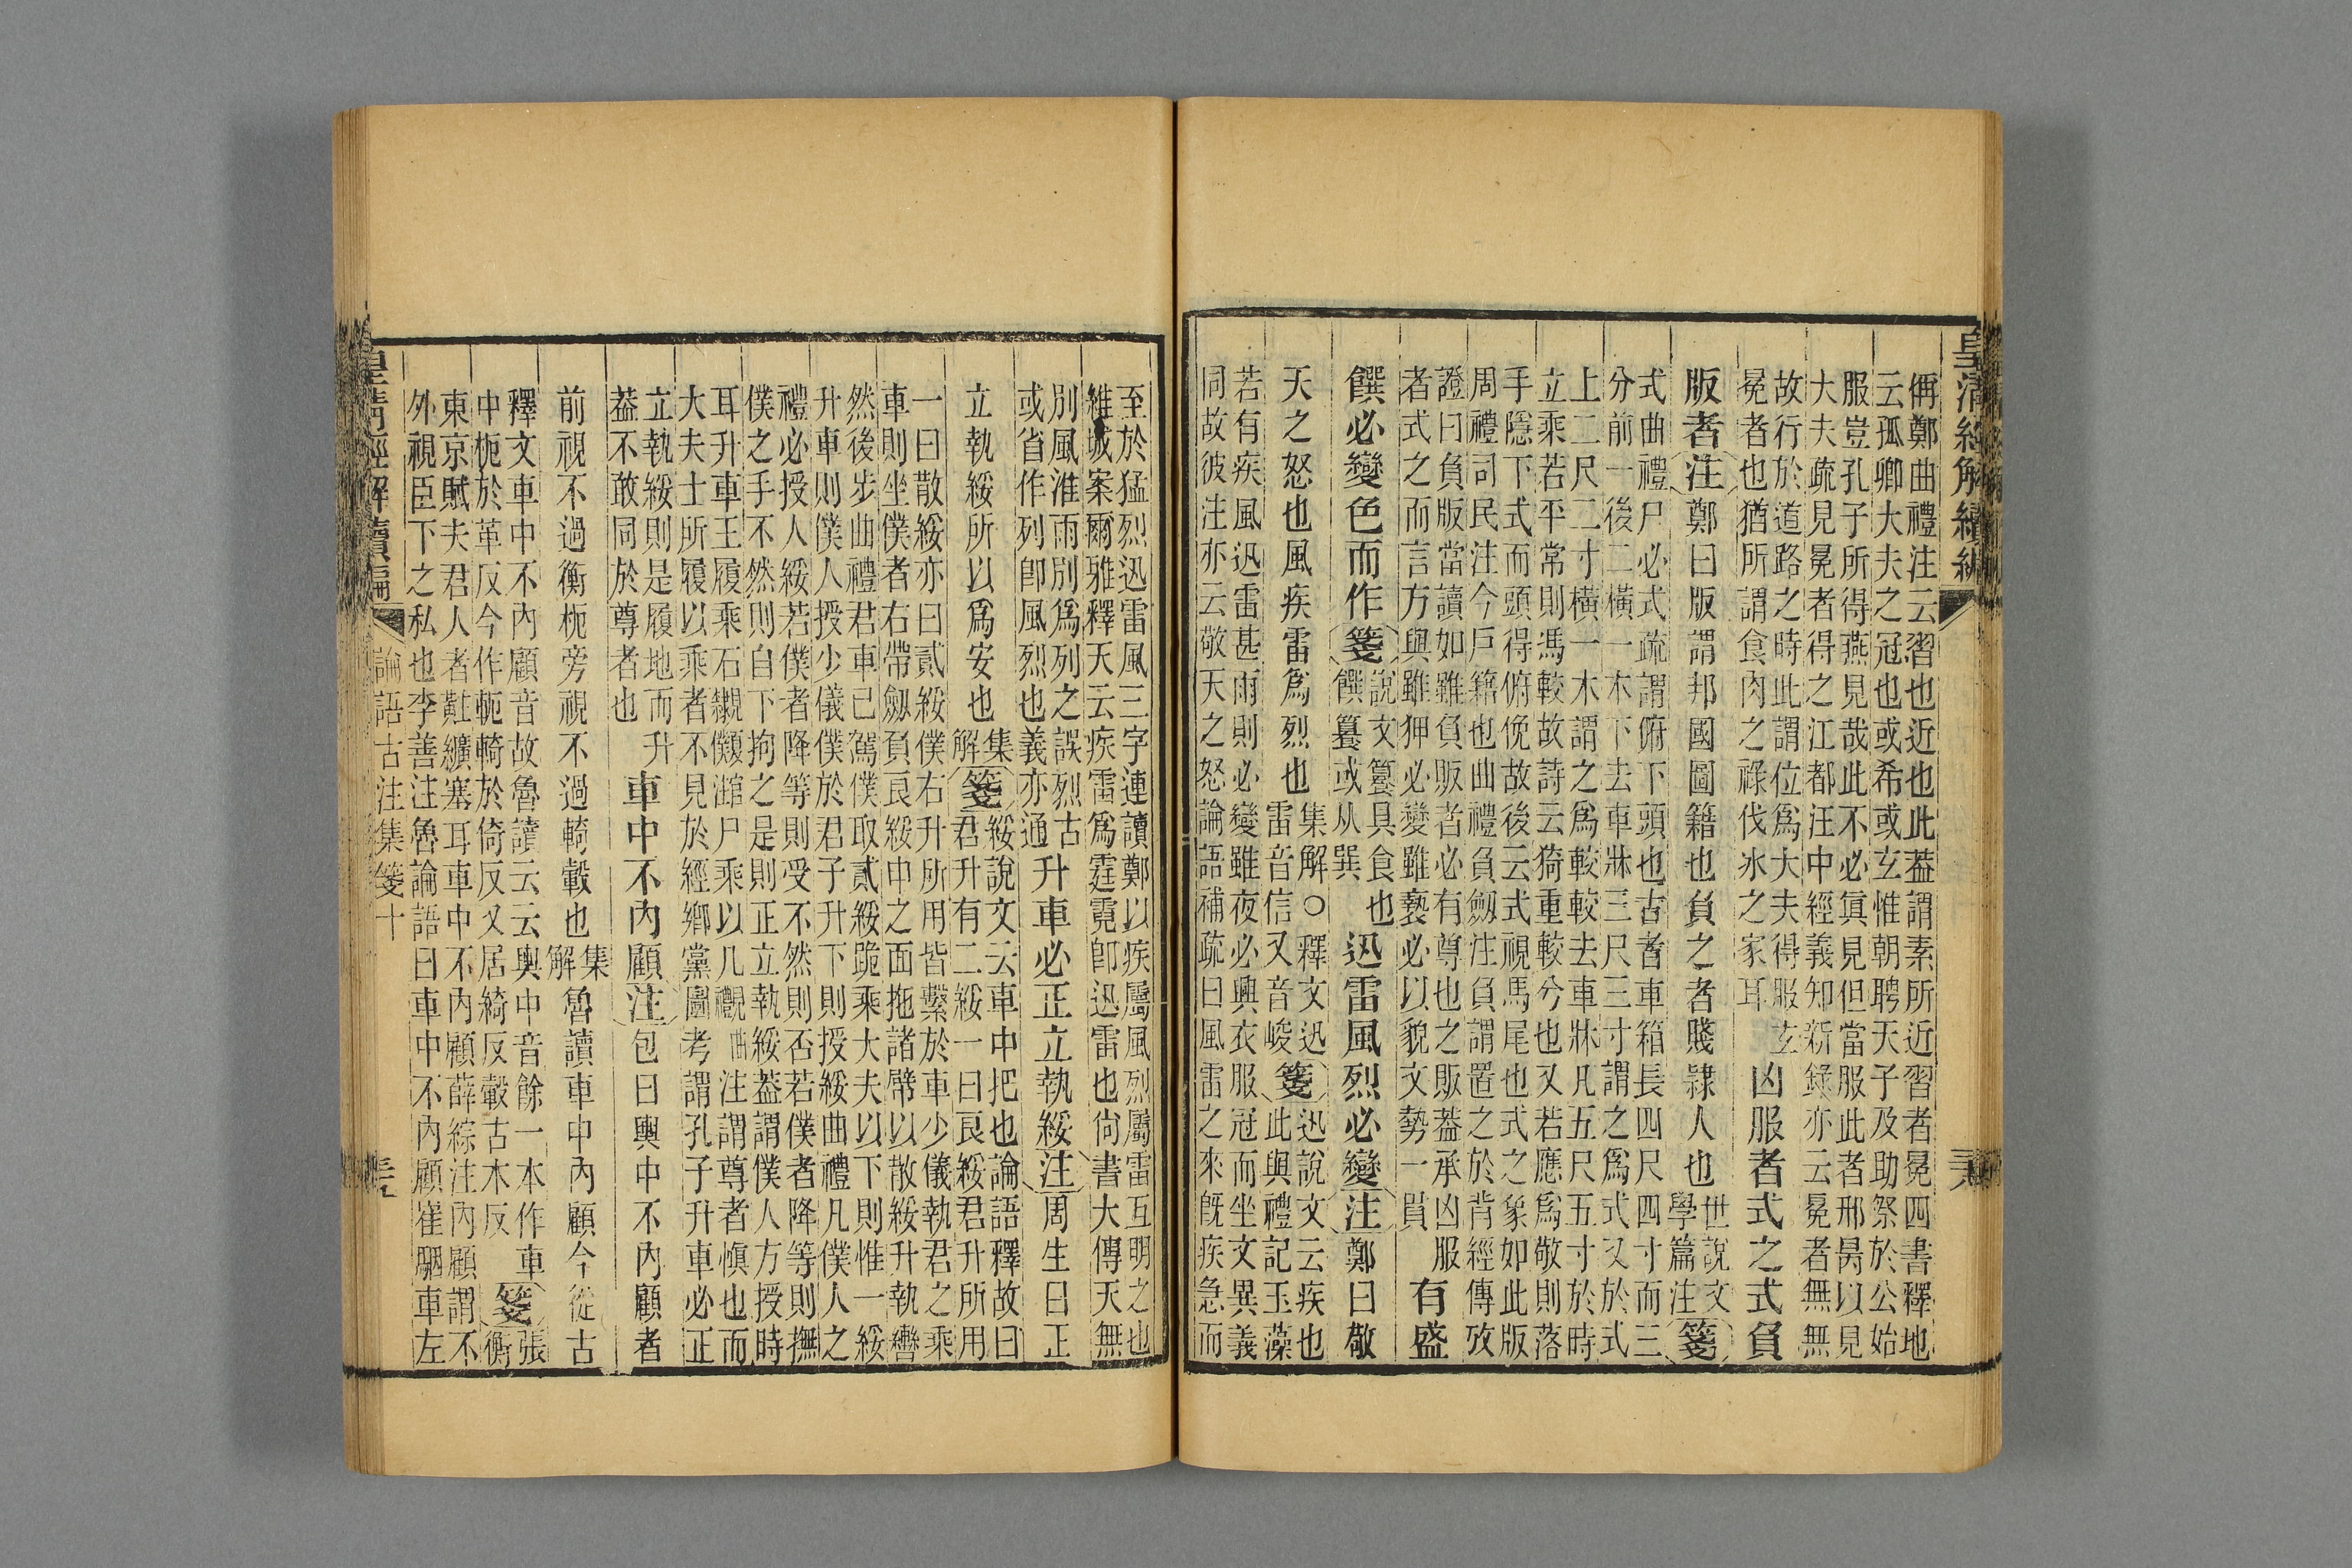 皇淸經解續編
偁鄭曲禮注云習也近也此葢謂素所近習者冕四書釋地
云孤卿大夫之冠也或希或玄惟朝聘天子及助祭於公始
服豈孔子所得燕見哉此不必眞見但當服此者邢昺以見
大夫疏見冕者得之江都汪中經義知新錄亦云冕者無無
故行於道路之時此謂位爲大夫得服玄
冕者也猶所謂食肉之祿伐冰之家耳
凶服者式之式負
版者注鄭曰版謂邦國圖籍也負之者賤隷人也
世說文
學篇注
箋
式曲禮尸必式疏謂俯下頭也古者車箱長四尺四寸而三
分前一後二橫一木下去車牀三尺三寸謂之爲式又於式
上二尺二寸橫一木謂之爲較較去車牀凡五尺五寸於時
立乘若平常則馮較故詩云猗重較兮也又若應爲敬則落
手隱下式而頭得俯俛故後云式視馬尾也式之象如此版
周禮司民注今戶籍也曲禮負劔注負謂置之於背經傳攷
證曰負版當讀如雖負販者必有尊也之販葢承凶服
者式之而言方與雖狎必變雖褻必以貌文勢一貫
有盛
饌必變色而作箋
說文籑具食也
饌籑或从巽
迅雷風烈必變注鄭曰敬
天之怒也風疾雷爲烈也
集解○釋文迅
雷音信又音峻
箋
迅說文云疾也
此與禮記玉藻
若有疾風迅雷甚雨則必變雖夜必興衣服冠而坐文異義
同故彼注亦云敬天之怒論語補疏曰風雷之來旣疾急而
至於猛烈迅雷風三字連讀鄭以疾屬風烈屬雷互明之也
維城案爾雅釋天云疾雷爲霆霓卽迅雷也尙書大傳天無
別風淮雨別爲列之誤烈古
或省作列卽風烈也義亦通
升車必正立執綏注周生曰正
立執綏所以爲安也
集
解
箋
綏說文云車中把也論語釋故曰
君升有二綏一曰良綏君升所用
一曰散綏亦曰貳綏僕右升所用皆繫於車少儀執君之乘
車則坐僕者右帶劔負良綏申之面拖諸幦以散綏升執轡
然後步曲禮君車已駕僕取貳綏跪乘大夫以下則惟一綏
升車則僕人授少儀僕於君子升下則授綏曲禮凡僕人之
禮必授人綏若僕者降等則受不然則否若僕者降等則撫
僕之手不然則自下拘之是則正立執綏葢謂僕人方授時
耳升車王履乘石
尸乘以几
注謂尊者愼也而
大夫士所履以乘者不見於經鄕黨圖考謂孔子升車必正
立執綏則是履地而升
葢不敢同於尊者也
車中不內顧注包曰輿中不內顧者
前視不過衡枙旁視不過輢轂也
集
解
魯讀車中內顧今從古
釋文車中不內顧音故魯讀云云輿中音餘一本作車
中枙於革反今作軛輢於倚反又居綺反轂古木反
箋
張
衡
東京賦夫君人者黈纊塞耳車中不內顧薛綜注內顧謂不
外視臣下之私也李善注魯論語曰車中不內顧崔駰車左
皇淸經解續編
論語古注集箋十